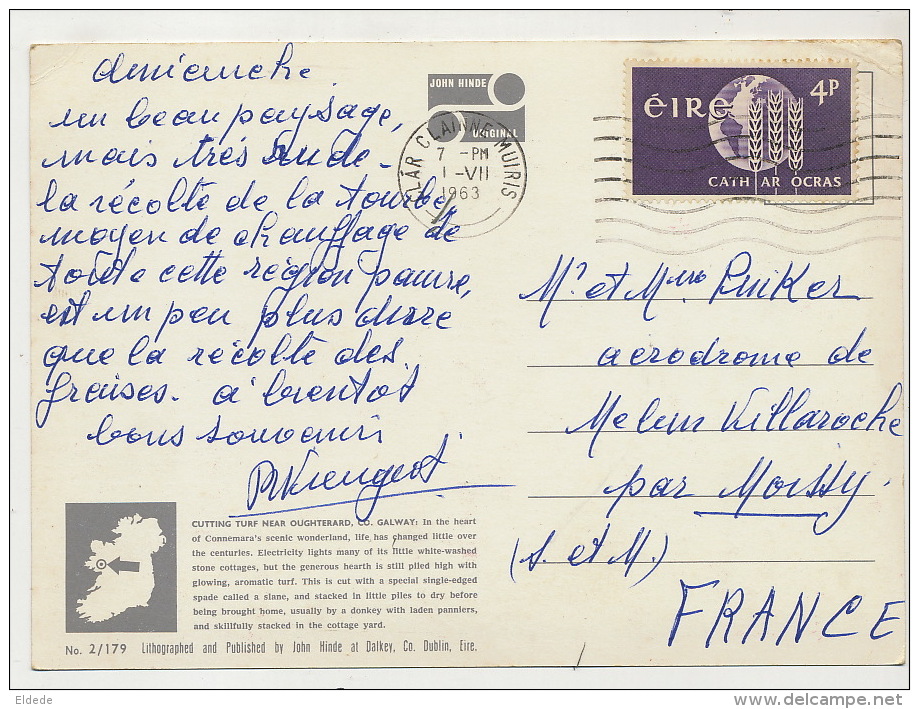 dimanche
un beau paysage,
mais très rude -
la récolte de la tourbe,
moyen de chauffage de
toute cette région pauvre,
est un peu plus dure
que la récolte des
fraises. à bientôt
bons souvenirs
JOHN HINDE
ORIGINAL
CLÁR CLAINNE MUIRIS
7 - PM
1 - VII
1963
ÉIRE
4P
CATH AR OCRAS
Mr et Mme
aerodrome de
Melun Villaroche
par Moissy.
(S. et M.)
FRANCE
CUTTING TURF NEAR OUGHTERARD, CO. GALWAY: In the heart
of Connemara's scenic wonderland, life has changed little over
the centuries. Electricity lights many of its little white-washed
stone cottages, but the generous hearth is still piled high with
glowing, aromatic turf. This is cut with a special single-edged
spade called a slane, and stacked in little piles to dry before
being brought home, usually by a donkey with laden panniers,
and skillfully stacked in the cottage yard.
No. 2/179 Lithographed and Published by John Hinde at Dalkey, Co. Dublin, Eire.
Eldede
delcampe.net